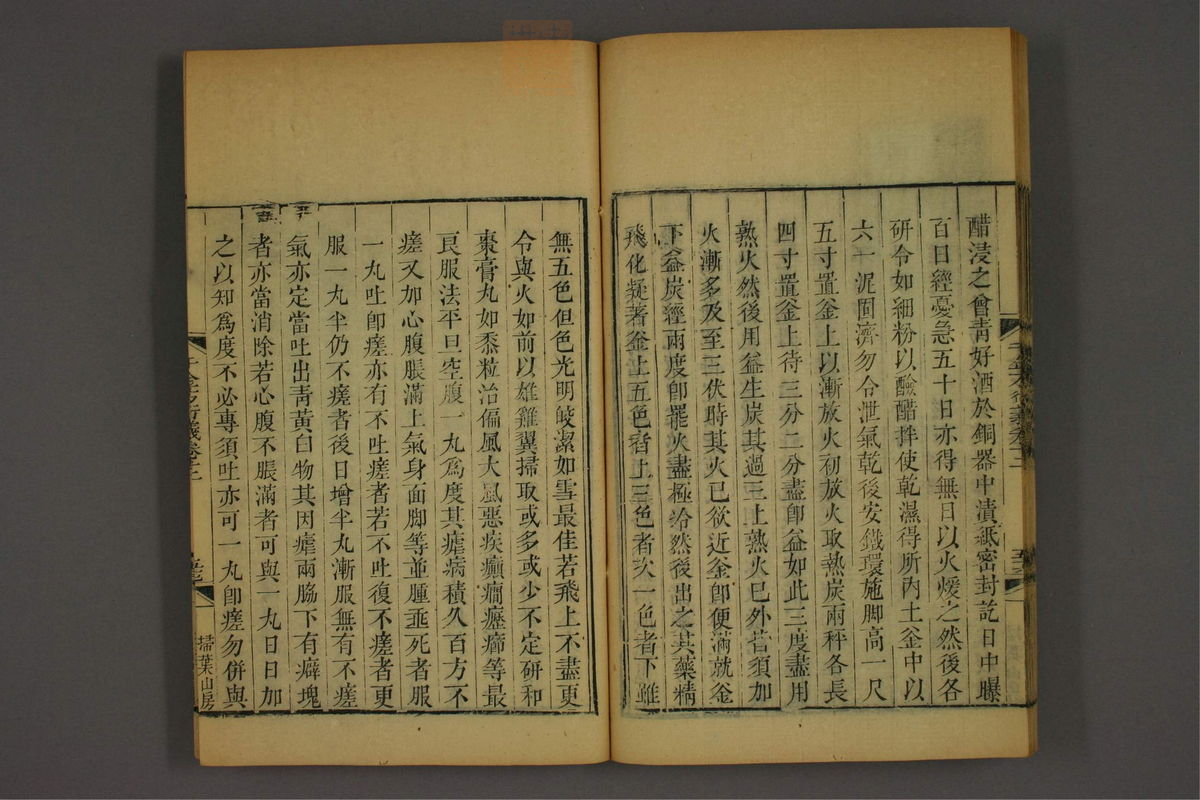 醋浸之曾青好酒於銅器中漬紙密封訖日中曝
百日經憂急五十日亦得無日以火煖之然後各
研令如細粉以釅醋拌使乾濕得所內土釜中以
六一泥固濟勿令泄氣乾後安鐵環施脚高一尺
五寸置釜上以漸放火初放火取熟炭兩秤各長
四寸置釜上待三分二分盡卽益如此三度盡用
熟火然後用益生炭其過三上熟火已外皆須加
火漸多及至三伏時其火已欲近釜卽便滿就釜
下益炭經兩度卽罷火盡極冷然後出之其藥精
飛化凝著釜上五色者上三色者次一色者下雖
無五色但色光明皎潔如雪最佳若飛上不盡更
令與火如前以雄雞翼掃取或多或少不定研和
棗膏丸如黍粒治偏風大風惡疾癲癇癧癤等最
良服法平旦空腹一丸爲度其瘧病積久百方不
瘥又加心腹脹滿上氣身面脚等並腫垂死者服
一丸吐卽瘥亦有不吐瘥者若不吐復不瘥者更
服一丸半仍不瘥者後日增半丸漸服無有不瘥
氣亦定當吐出靑黃白物其因瘧兩脇下有癖塊
者亦當消除若心腹不脹滿者可與一丸日日加
之以知爲度不必專須吐亦可一丸卽瘥勿併與
掃葉山房